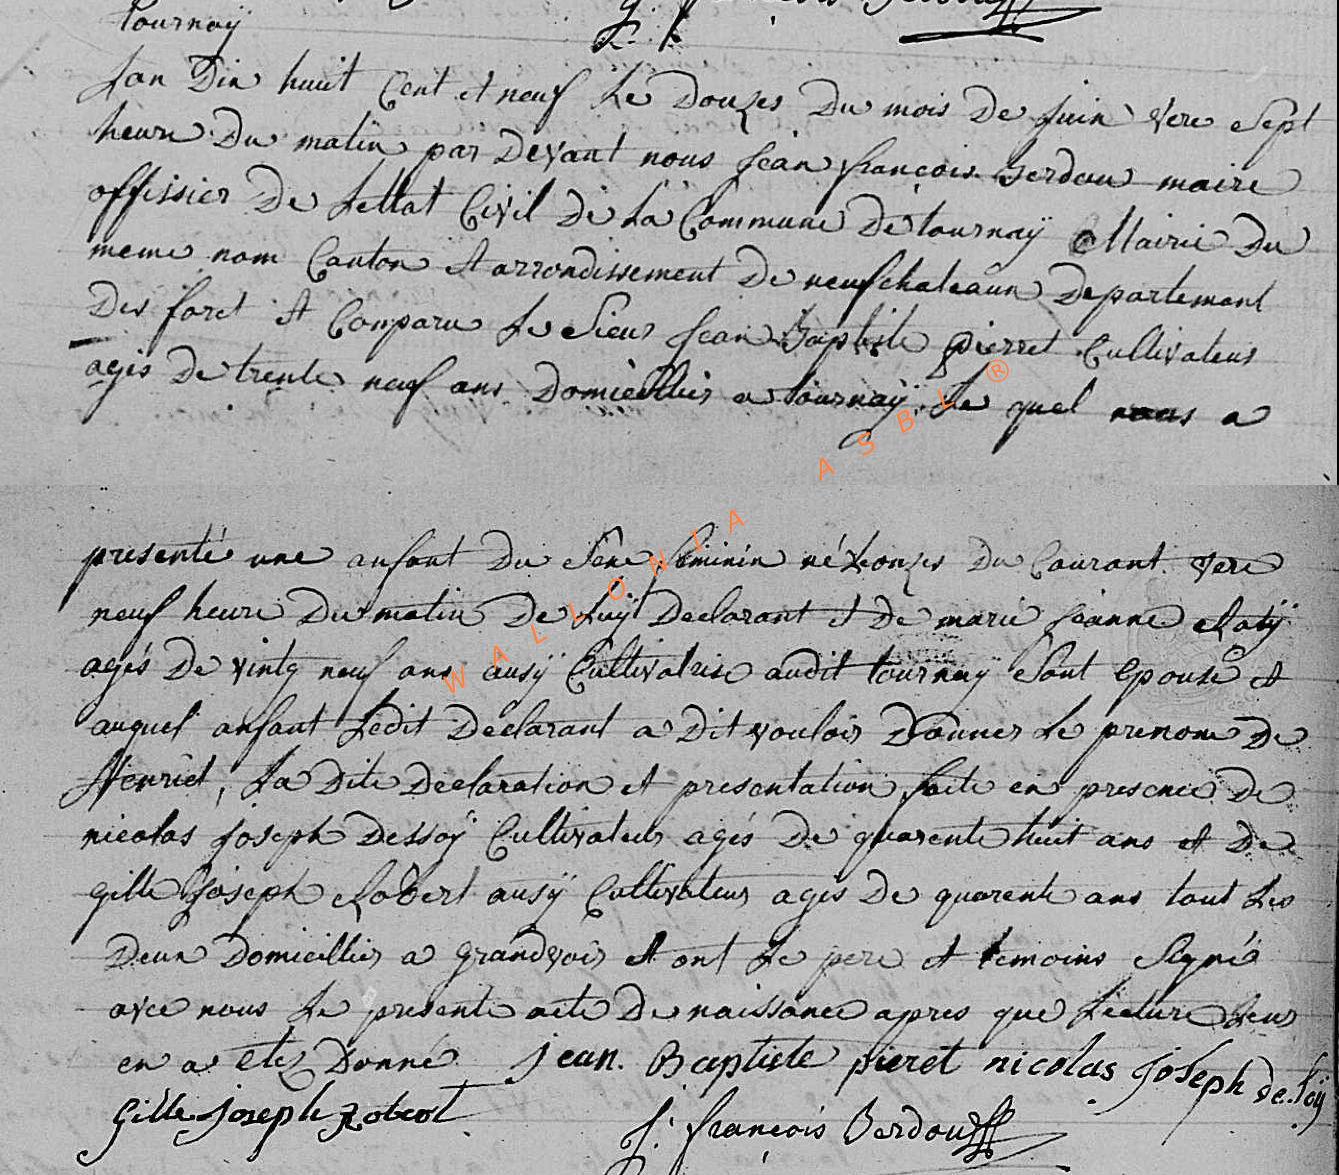 tournaÿ
J. françois
Lan Dix huit Cent et neuf Le Douzes Du mois De Juin vere Sept
heure Du matin par Devant nous Jean françois Berdou maire
offissier De Lettat Civil De La Commune De tournaÿ Mairie Du
meme nom Canton et arrondissement De neufchateaux Departement
Des foret et Comparu Le Sieur Jean Baptiste pierret Cultivateur
agis De trente neuf ans Domicillier a tournaÿ Le quel nous a
presenté une anfant Du Sexe feminin né Lonzes Du Courant vere
neuf heure Du matin De Luÿ Declarant et De marie Jeanne
agés De vintg neuf ans ausÿ Cultivatrise audit tournaÿ Sont Epouse et
auquel anfant Ledit Declarant a Dit vouloir Donner Le prenom De
Henriet, La Dite Declaration et presentation faite en presence De
nicolas Joseph Dessoÿ Cultivateur agés De quarente huit ans et De
gille Joseph Robert ausÿ Cultivateur agés De quarente ans tout Les
Deux Domicillier a grandvoir et ont Le pere et temoins Signé
avec nous Le presente acte De naissance apres que Lecture Leur
en a etez Donné Jean. Baptiste pieret nicolas Joseph de.soÿ
Gille Joseph Robert J: françois Berdou
WALLONIA ASBL ®